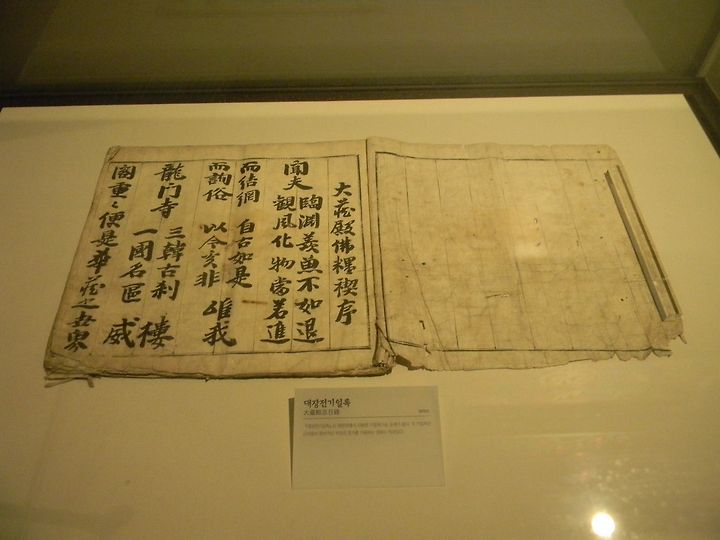 大藏殿佛糧稧序
聞夫
臨淵羨魚不如退
觀風化物當若進
而結網 自古如是
而詢俗 以今奚非 唯我
龍門寺 三韓古刹 樓
一國名區 威
閣重〻便是華藏之世界
대장전기일록
大藏殿忌日錄